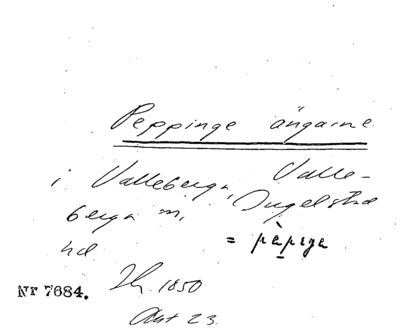 Peppinge ängarne
i Valleberga, Valle-
berga sn, Ingelstad
hd = pèpige
Nr 7684. Ih. 1850
Akt 23